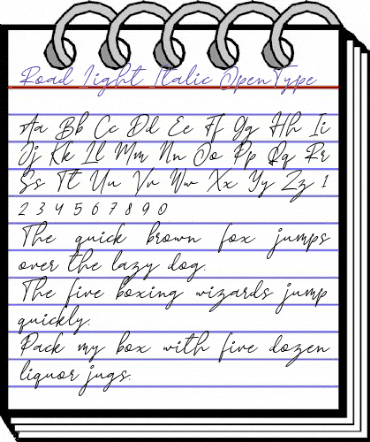 Road Light Italic OpenType
Aa Bb Cc Dd Ee Ff Gg Hh Ii
Jj Kk Ll Mm Nn Oo Pp Qq Rr
Ss Tt Uu Vv Ww Xx Yy Zz 1
2 3 4 5 6 7 8 9 0
The quick brown fox jumps
over the lazy dog.
The five boxing wizards jump
quickly.
Pack my box with five dozen
liquor jugs.